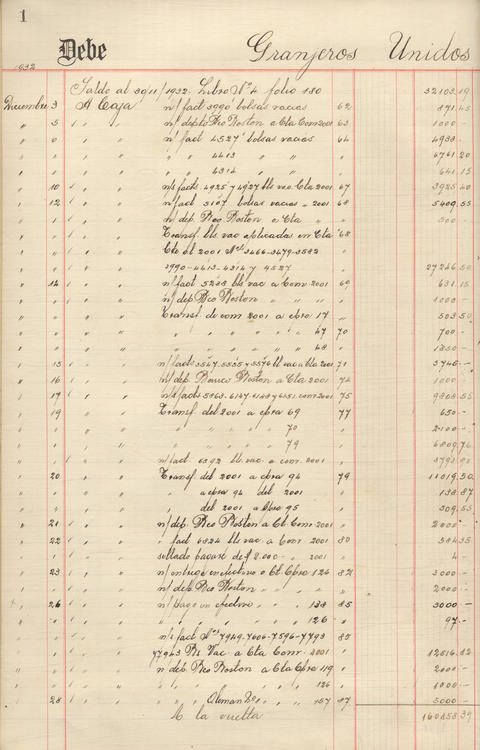 1
Debe Granjeros Unidos
1932
Saldo al 30/11/1932 Libro Nº 4 folio 180 32103.19
Diciembre 3 A Caja n/ fact 3990 bolsas vacias 62 891.45
" 5 " " n/ depto Bco Boston a Cta Com 2001 63 1000.-
" 6 " " n/ fact 4527 bolsas vacias 64 4938.-
" " " " " 4413 " " 6761.20
" " " " " 4314 " " 641.15
" 10 " " n/ facts 4925 y 4927 bls vac Cta 2001 67 3925.40
" 12 " " n/ fact 5107 bolsas vacias " 2001 68 5409.55
" " " n/ dep. Bco Boston a Cta " 500.-
Transf. bls. vac aplicadas en Cta 68
Cte al 2001 Nos 3466-3479-3582
3990-4413-4314 y 4527 27246.50
" 14 " " n/ fact 5288 bls vac a Com 2001 69 631.15
" " " n/ dep. Bco Boston " " " 1000.-
" " " Transf. de com 2001 a cpra 17 " 503.50
" " " " " " " 47 70 700.-
" " " " " " " 48 " 1350.-
" 15 " " n/ facts 5547-5555 y 5576 bl vac a Cta 2001 71 3745.-
" 16 " " n/ dep. Banco Boston a Cta 2001 72 1000.-
" 17 " " 75 9808.55
" 19 " " Transf. del 2001 a cpra 69 77 650.-
" " " " " " 70 2100.-
" " " " " " 79 6809.76
" " " n/ fact. 6392 bls. vac. a com. 2001
" 20 " " Transf del 2001 a cpra 94 79 11019.50
" " " a cpra 94 del 2001 138.87
" " " del 2001 a Cpra 95 509.55
" 21 " " n/ dep. Bco Boston a Ct Com 2001 " 2000.-
" 22 " " fact 6824 bls vac a Com 2001 80 504.35
" " " sellado pagaré de $ 2.000.- " 2001 " 4.-
" 23 " " n/ entrega en efectivo a Ct Cpra 126 82 3000.-
" " " n/ dep. Bco Boston " " " 2000.-
" 26 " " n/ pago en efectivo " " " 138 85 3000.-
" " " " " " " 126 " 97.-
" " " n/ fact Nos 7949-7606-7596-7793 85
77943 Bls Vac a Cta Com. 2001 12516.82
" " " n/ dep. Bco Boston a Cta Cpra 119 " 2000.-
" " " " " " " 126 " 1000.-
" 28 " " " " Aleman " " 157 87 5000.-
A la vuelta 160858.39